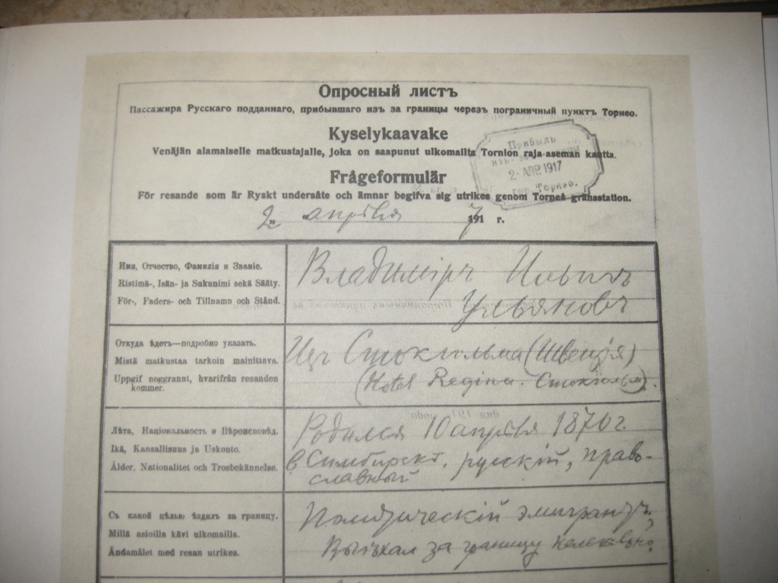 Опросный листъ
Пассажира Русскаго подданнаго, прибывшаго изъ за границы черезъ пограничный пунктъ Торнео.
Kyselykaavake
Venäjän alamaiselle matkustajalle, joka on saapunut ulkomailta Tornion raja-aseman kautta.
Прибылъ
2- АПР 1917
Торнео.
Frågeformulär
För resande som är Ryskt undersåte och ämnar begifva sig utrikes genom Torneå gränsstation.
2 апрѣля 1917 г.
Имя, Отчество, Фамилія и Званіе.
Ristimä-, Isän- ja Sukunimi sekä Sääty.
För-, Faders- och Tillnamn och Stånd.
Владиміръ Ильичъ
Ульяновъ
Откуда ѣдетъ—подробно указать.
Mistä matkustaa tarkoin mainittava.
Uppgif noggrannt, hvarifrån resanden
kommer.
Изъ Стокгольма (Швеція)
(Hotel Regina. Стокгольм).
Лѣта, Національность и Вѣроисповѣд.
Ikä, Kansallisuus ja Uskonto.
Ålder, Nationalitet och Trosbekännelse.
Родился 10 апрѣля 1870 г.
в Симбирскѣ, русскій, право-
славный
Съ какой цѣлью ѣздилъ за границу.
Millä asioilla kävi ulkomailla.
Ändamålet med resan utrikes.
Политическій эмигрантъ.
Выѣхал за границу нелегально.